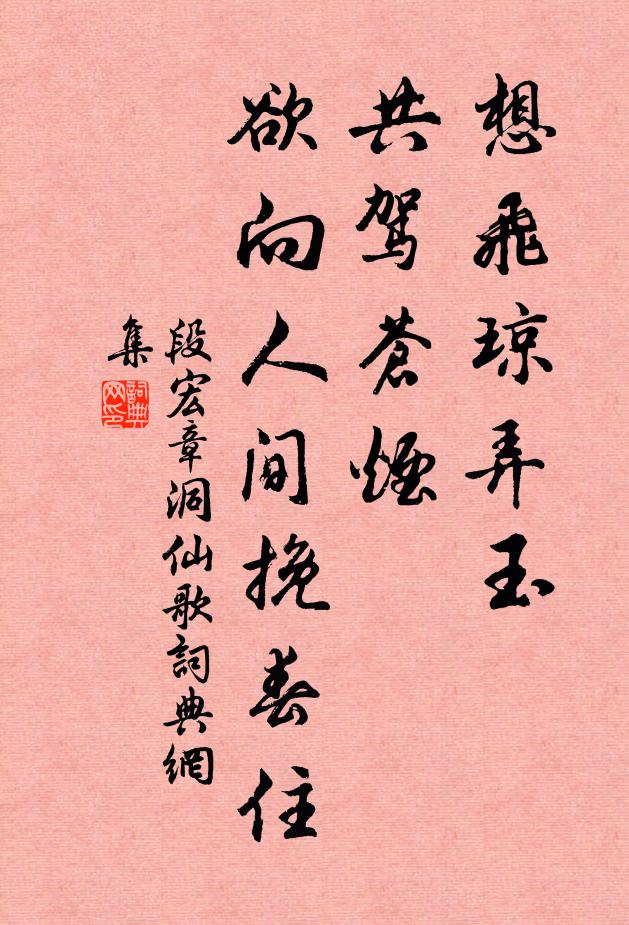 想飛瓊弄玉
共駕蒼煙
欲向人間挽春住
段宏章洞仙歌詞典網
集
詞典網印